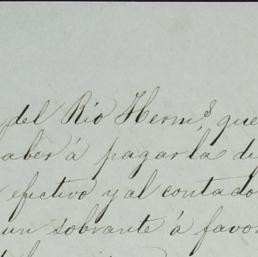 del Rio Herm.s que
aber á pagarla de
efectivo y al contado
un sobrante á favor